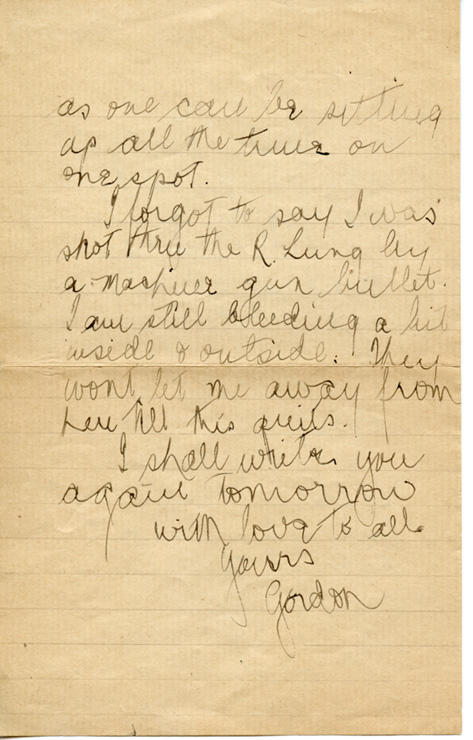 as one can be sitting
up all the time on
one spot.
I forgot to say I was
shot thru the R. Lung by
a machine gun bullet.
I am still bleeding a bit
inside & outside. They
wont let me away from
here till this
I shall write you
again tomorrow
with love to all
Yours
Gordon